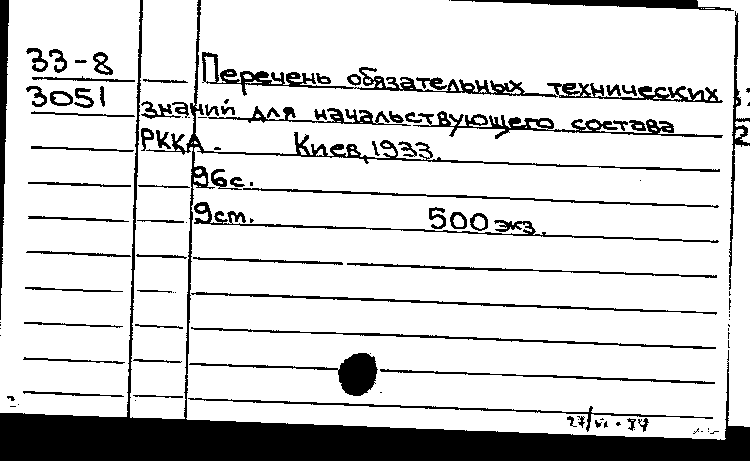 33-8 Перечень обязательных технических
3051 знаний для начальствующего состава
РККА. Киев, 1933.
96с.
9ст. 500 экз.